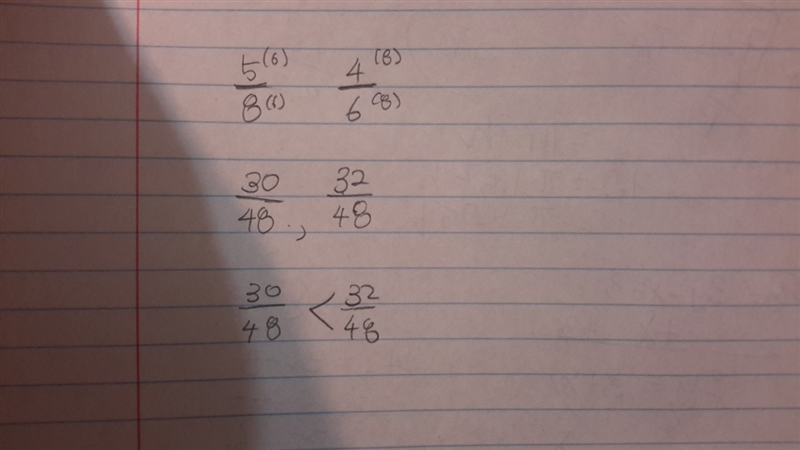 5(6)/8(6) 4(8)/6(8)
30/48, 32/48
30/48 < 32/48